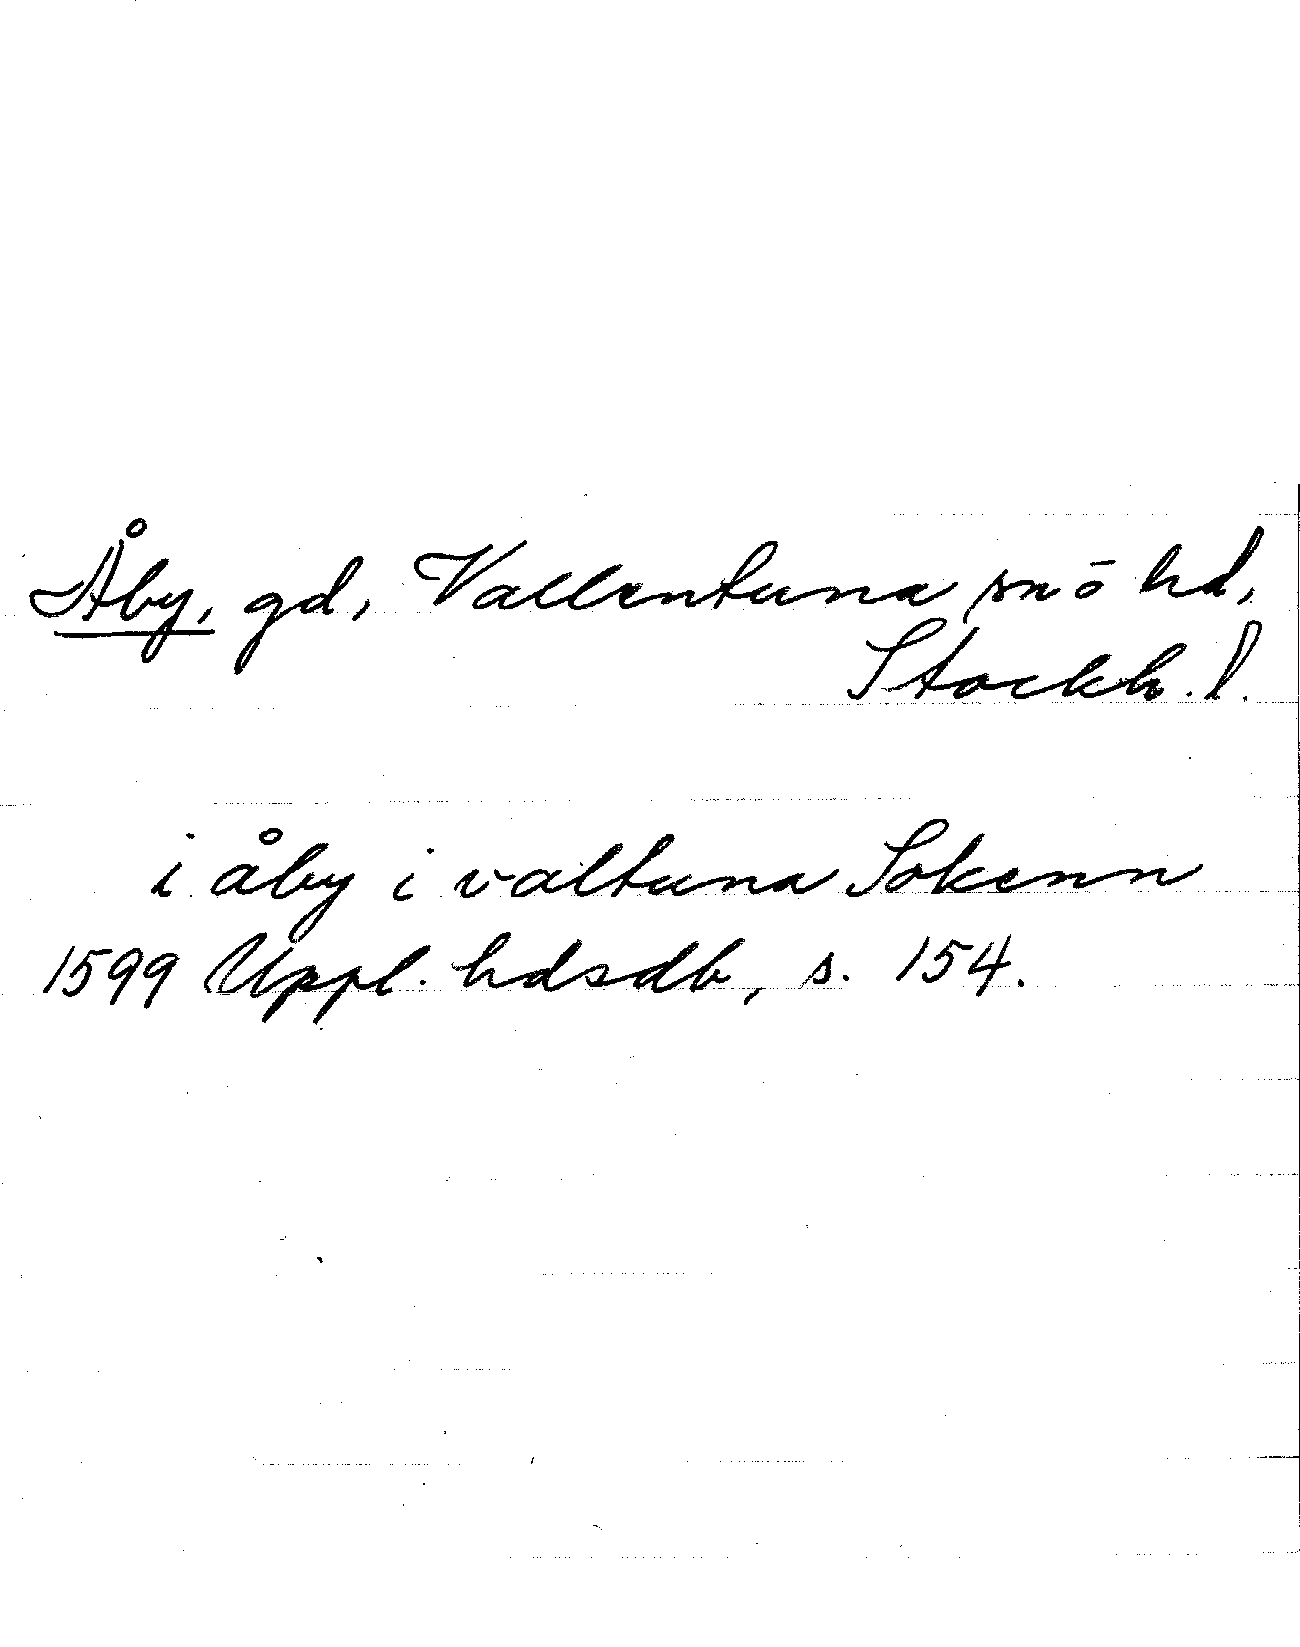 Åby, gd, Vallentuna sn ō hd,
Stockh. l.
i åby i valtuna Sokenn
1599 Uppl. hdsdb, s. 154.